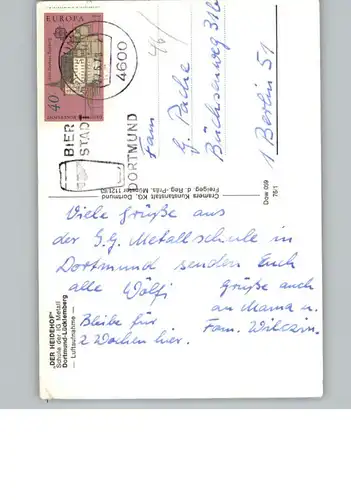 Viele Grüße aus
der I.G. Metallschule in
Dortmund senden Euch
alle Wölfi
Grüße auch
an Mama u.
Fam. Wilczin.
Bleibe für
2 Wochen hier.
"DER HEIDEHOF"
Schule der IG Metall
Dortmund-Lücklemberg
— Luftaufnahme —
Cramers Kunstanstalt KG, Dortmund
Freigeg. d. Reg.-Präs. Münster
Dow 09
EUROPA
40
4600
DORTMUND
BIER
STADT
Fam.
G. Pache
1 Berlin 51